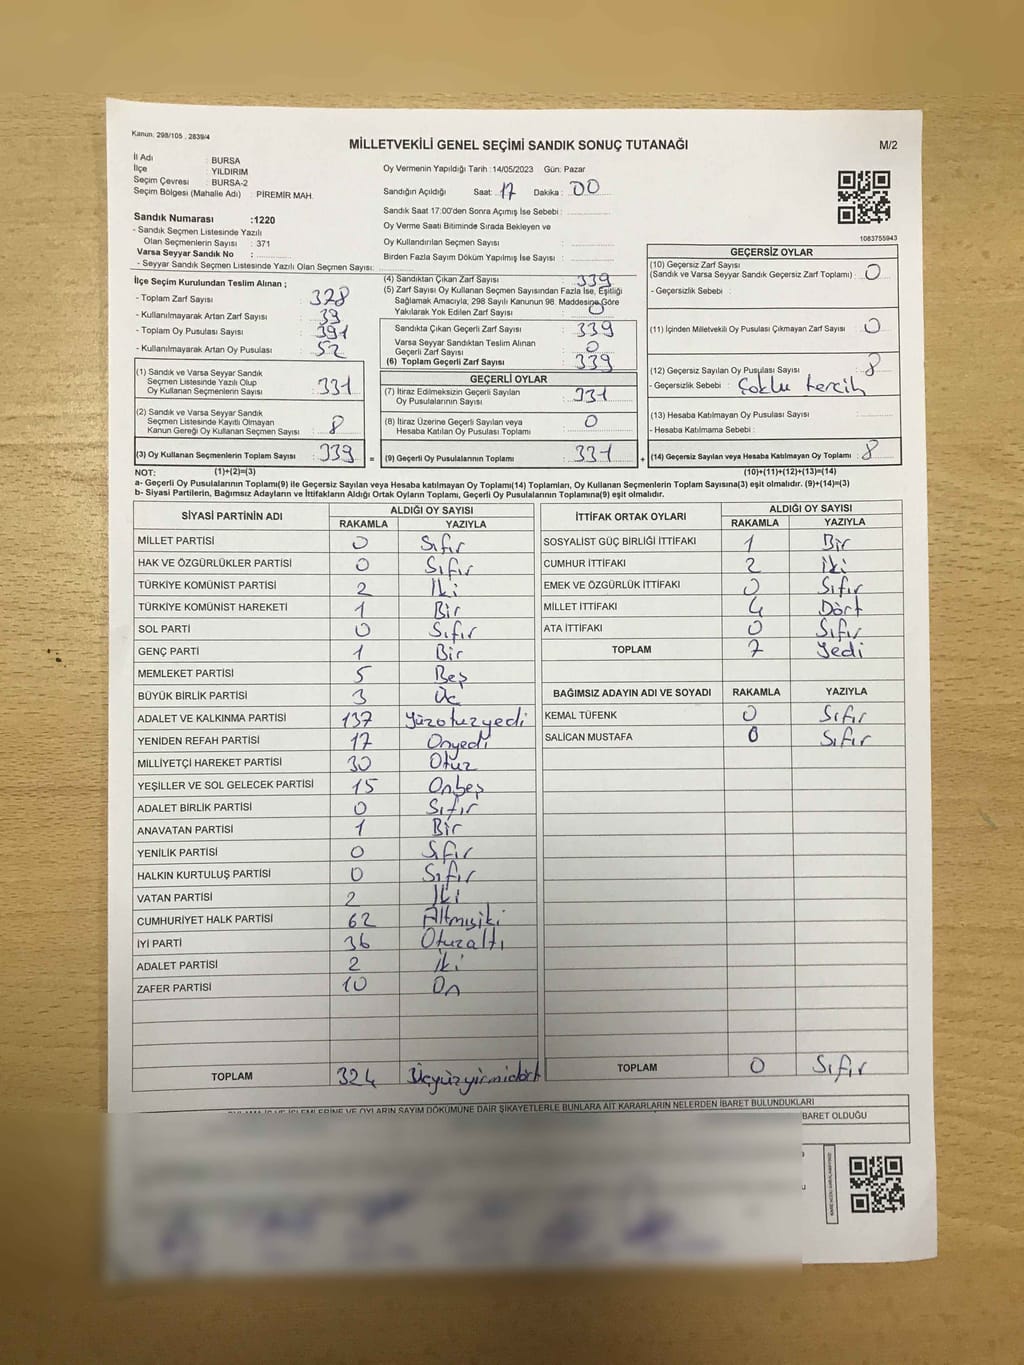 Kanun: 298/105 , 2839/4
MİLLETVEKİLİ GENEL SEÇİMİ SANDIK SONUÇ TUTANAĞI
M/2
İl Adı : BURSA
İlçe : YILDIRIM
Seçim Çevresi : BURSA-2
Seçim Bölgesi (Mahalle Adı) : PİREMİR MAH.
Oy Vermenin Yapıldığı Tarih : 14/05/2023 Gün: Pazar
Sandığın Açıldığı Saat : 17 Dakika : 00
Sandık Saat 17:00'den Sonra Açımış İse Sebebi :
Oy Verme Saati Bitiminde Sırada Bekleyen ve
Oy Kullandırılan Seçmen Sayısı :
Birden Fazla Sayım Döküm Yapılmış İse Sayısı :
1083755943
Sandık Numarası :1220
- Sandık Seçmen Listesinde Yazılı
Olan Seçmenlerin Sayısı : 371
Varsa Seyyar Sandık No :
- Seyyar Sandık Seçmen Listesinde Yazılı Olan Seçmen Sayısı:
İlçe Seçim Kurulundan Teslim Alınan ;
- Toplam Zarf Sayısı : 328
- Kullanılmayarak Artan Zarf Sayısı : 39
- Toplam Oy Pusulası Sayısı : 391
- Kullanılmayarak Artan Oy Pusulası : 52
(1) Sandık ve Varsa Seyyar Sandık
Seçmen Listesinde Yazılı Olup
Oy Kullanan Seçmenlerin Sayısı : 331
(2) Sandık ve Varsa Seyyar Sandık
Seçmen Listesinde Kayıtlı Olmayan
Kanun Gereği Oy Kullanan Seçmen Sayısı : 8
(3) Oy Kullanan Seçmenlerin Toplam Sayısı : 339 =
(4) Sandıktan Çıkan Zarf Sayısı : 339
(5) Zarf Sayısı Oy Kullanan Seçmen Sayısından Fazla İse, Eşitliği
Sağlamak Amacıyla; 298 Sayılı Kanunun 98. Maddesine Göre
Yakılarak Yok Edilen Zarf Sayısı : 0
Sandıkta Çıkan Geçerli Zarf Sayısı : 339
Varsa Seyyar Sandıktan Teslim Alınan
Geçerli Zarf Sayısı : 0
(6) Toplam Geçerli Zarf Sayısı : 339
GEÇERLİ OYLAR
(7) İtiraz Edilmeksizin Geçerli Sayılan
Oy Pusulalarının Sayısı : 331
(8) İtiraz Üzerine Geçerli Sayılan veya
Hesaba Katılan Oy Pusulası Toplamı : 0
(9) Geçerli Oy Pusulalarının Toplamı : 331 +
GEÇERSİZ OYLAR
(10) Geçersiz Zarf Sayısı
(Sandık ve Varsa Seyyar Sandık Geçersiz Zarf Toplamı) : 0
- Geçersizlik Sebebi :
(11) İçinden Milletvekili Oy Pusulası Çıkmayan Zarf Sayısı : 0
(12) Geçersiz Sayılan Oy Pusulası Sayısı : 8
- Geçersizlik Sebebi : Çoklu tercih
(13) Hesaba Katılmayan Oy Pusulası Sayısı :
- Hesaba Katılmama Sebebi :
(14) Geçersiz Sayılan veya Hesaba Katılmayan Oy Toplamı : 8
NOT: (1)+(2)=(3) (10)+(11)+(12)+(13)=(14)
a- Geçerli Oy Pusulalarının Toplamı(9) ile Geçersiz Sayılan veya Hesaba katılmayan Oy Toplamı(14) Toplamları, Oy Kullanan Seçmenlerin Toplam Sayısına(3) eşit olmalıdır. (9)+(14)=(3)
b- Siyasi Partilerin, Bağımsız Adayların ve İttifakların Aldığı Ortak Oyların Toplamı, Geçerli Oy Pusulalarının Toplamına(9) eşit olmalıdır.
SİYASİ PARTİNİN ADI ALDIĞI OY SAYISI
RAKAMLA YAZIYLA
MİLLET PARTİSİ 0 Sıfır
HAK VE ÖZGÜRLÜKLER PARTİSİ 0 Sıfır
TÜRKİYE KOMÜNİST PARTİSİ 2 İki
TÜRKİYE KOMÜNİST HAREKETİ 1 Bir
SOL PARTİ 0 Sıfır
GENÇ PARTİ 1 Bir
MEMLEKET PARTİSİ 5 Beş
BÜYÜK BİRLİK PARTİSİ 3 Üç
ADALET VE KALKINMA PARTİSİ 137 Yüzotuzyedi
YENİDEN REFAH PARTİSİ 17 Onyedi
MİLLİYETÇİ HAREKET PARTİSİ 30 Otuz
YEŞİLLER VE SOL GELECEK PARTİSİ 15 Onbeş
ADALET BİRLİK PARTİSİ 0 Sıfır
ANAVATAN PARTİSİ 1 Bir
YENİLİK PARTİSİ 0 Sıfır
HALKIN KURTULUŞ PARTİSİ 0 Sıfır
VATAN PARTİSİ 2 İki
CUMHURİYET HALK PARTİSİ 62 Altmışiki
İYİ PARTİ 36 Otuzaltı
ADALET PARTİSİ 2 İki
ZAFER PARTİSİ 10 On
TOPLAM 324 Üçyüzyirmidört
İTTİFAK ORTAK OYLARI ALDIĞI OY SAYISI
RAKAMLA YAZIYLA
SOSYALİST GÜÇ BİRLİĞİ İTTİFAKI 1 Bir
CUMHUR İTTİFAKI 2 İki
EMEK VE ÖZGÜRLÜK İTTİFAKI 0 Sıfır
MİLLET İTTİFAKI 4 Dört
ATA İTTİFAKI 0 Sıfır
TOPLAM 7 Yedi
BAĞIMSIZ ADAYIN ADI VE SOYADI RAKAMLA YAZIYLA
KEMAL TÜFENK 0 Sıfır
SALİCAN MUSTAFA 0 Sıfır
TOPLAM 0 Sıfır
İŞLEMLERİNE VE OYLARIN SAYIM DÖKÜMÜNE DAİR ŞİKAYETLERLE BUNLARA AİT KARARLARIN NELERDEN İBARET BULUNDUKLARI
BARET OLDUĞU